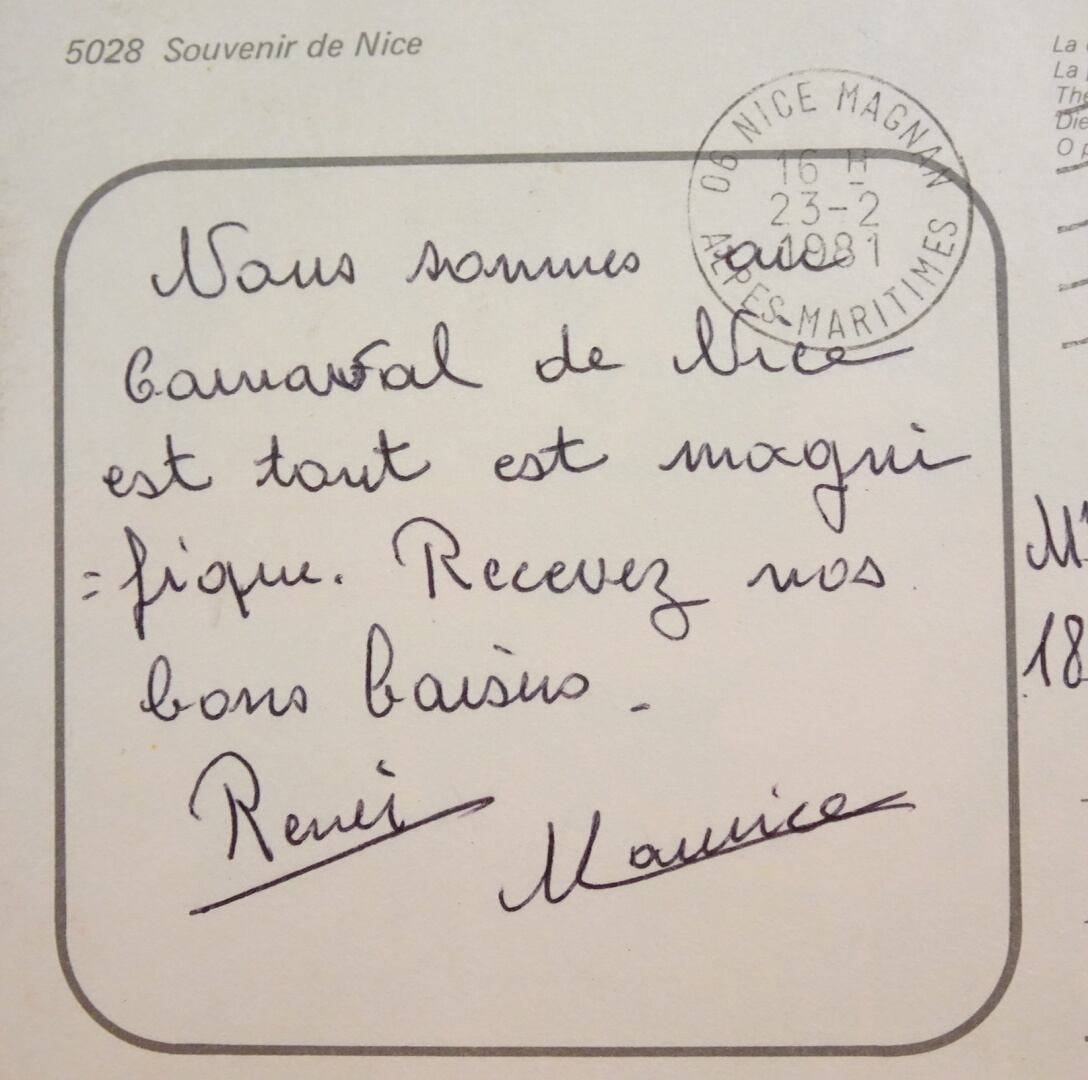 5028 Souvenir de Nice
06 NICE MAGNAN
16 H
23-2
1981
ALPES-MARITIMES
Nous sommes au
Carnaval de Nice
est tout est magni
=fique. Recevez nos
bons baisers.
René Maurice
La
La
The
Die
O
18